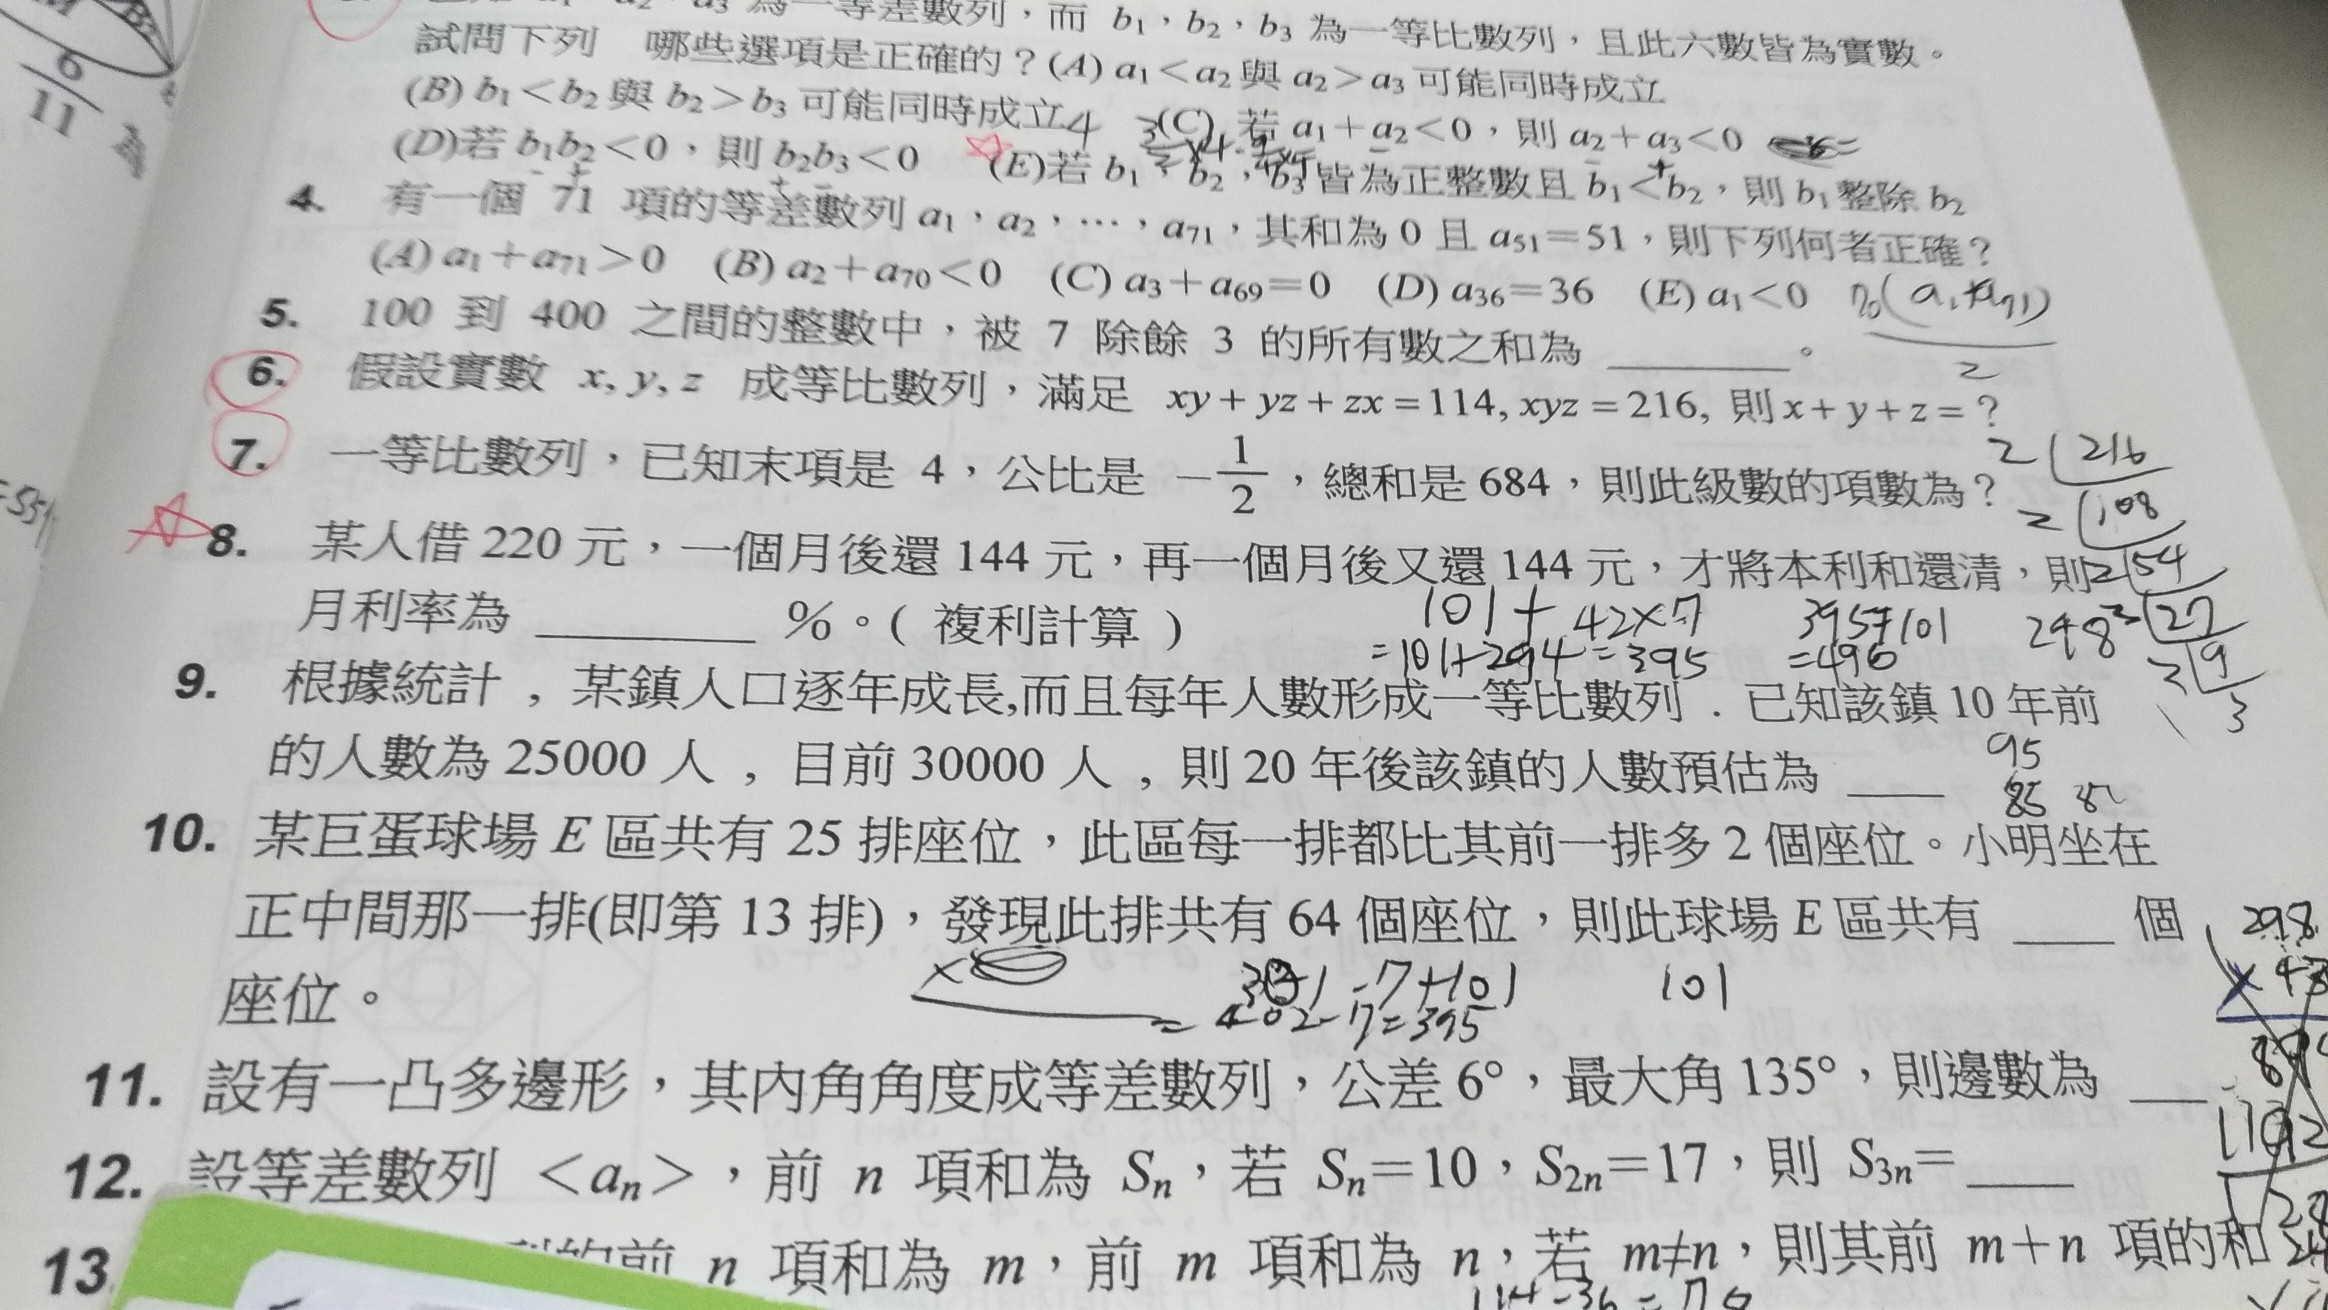 為一等差數列，而 b₁，b₂，b₃ 為一等比數列，且此六數皆為實數。
試問下列 哪些選項是正確的？(A) a₁＜a₂ 與 a₂＞a₃ 可能同時成立
(B) b₁＜b₂ 與 b₂＞b₃ 可能同時成立 (C) 若 a₁＋a₂＜0，則 a₂＋a₃＜0
(D)若 b₁b₂＜0，則 b₂b₃＜0 (E)若 b₁，b₂，b₃ 皆為正整數且 b₁＜b₂，則 b₁ 整除 b₂
4. 有一個 71 項的等差數列 a₁，a₂，…，a₇₁，其和為 0 且 a₅₁＝51，則下列何者正確？
(A) a₁＋a₇₁＞0 (B) a₂＋a₇₀＜0 (C) a₃＋a₆₉＝0 (D) a₃₆＝36 (E) a₁＜0
5. 100 到 400 之間的整數中，被 7 除餘 3 的所有數之和為 ______。
6. 假設實數 x, y, z 成等比數列，滿足 xy + yz + zx = 114, xyz = 216, 則 x + y + z = ?
7. 一等比數列，已知末項是 4，公比是 －1/2，總和是 684，則此級數的項數為？
8. 某人借 220 元，一個月後還 144 元，再一個月後又還 144 元，才將本利和還清，則
月利率為 ______ %。( 複利計算 )
101+42×7 395+101 298
=101+294=395 =496
9. 根據統計，某鎮人口逐年成長,而且每年人數形成一等比數列．已知該鎮 10 年前
的人數為 25000 人，目前 30000 人，則 20 年後該鎮的人數預估為 ____
10. 某巨蛋球場 E 區共有 25 排座位，此區每一排都比其前一排多 2 個座位。小明坐在
正中間那一排(即第 13 排)，發現此排共有 64 個座位，則此球場 E 區共有 ____ 個
座位。
101
6
11
216
108
54
27
9
3
95
85
298
11. 設有一凸多邊形，其內角角度成等差數列，公差 6°，最大角 135°，則邊數為 ___
12. 設等差數列 ＜aₙ＞，前 n 項和為 Sₙ，若 Sₙ＝10，S₂ₙ＝17，則 S₃ₙ＝____
13 前 n 項和為 m，前 m 項和為 n，若 m≠n，則其前 m＋n 項的和